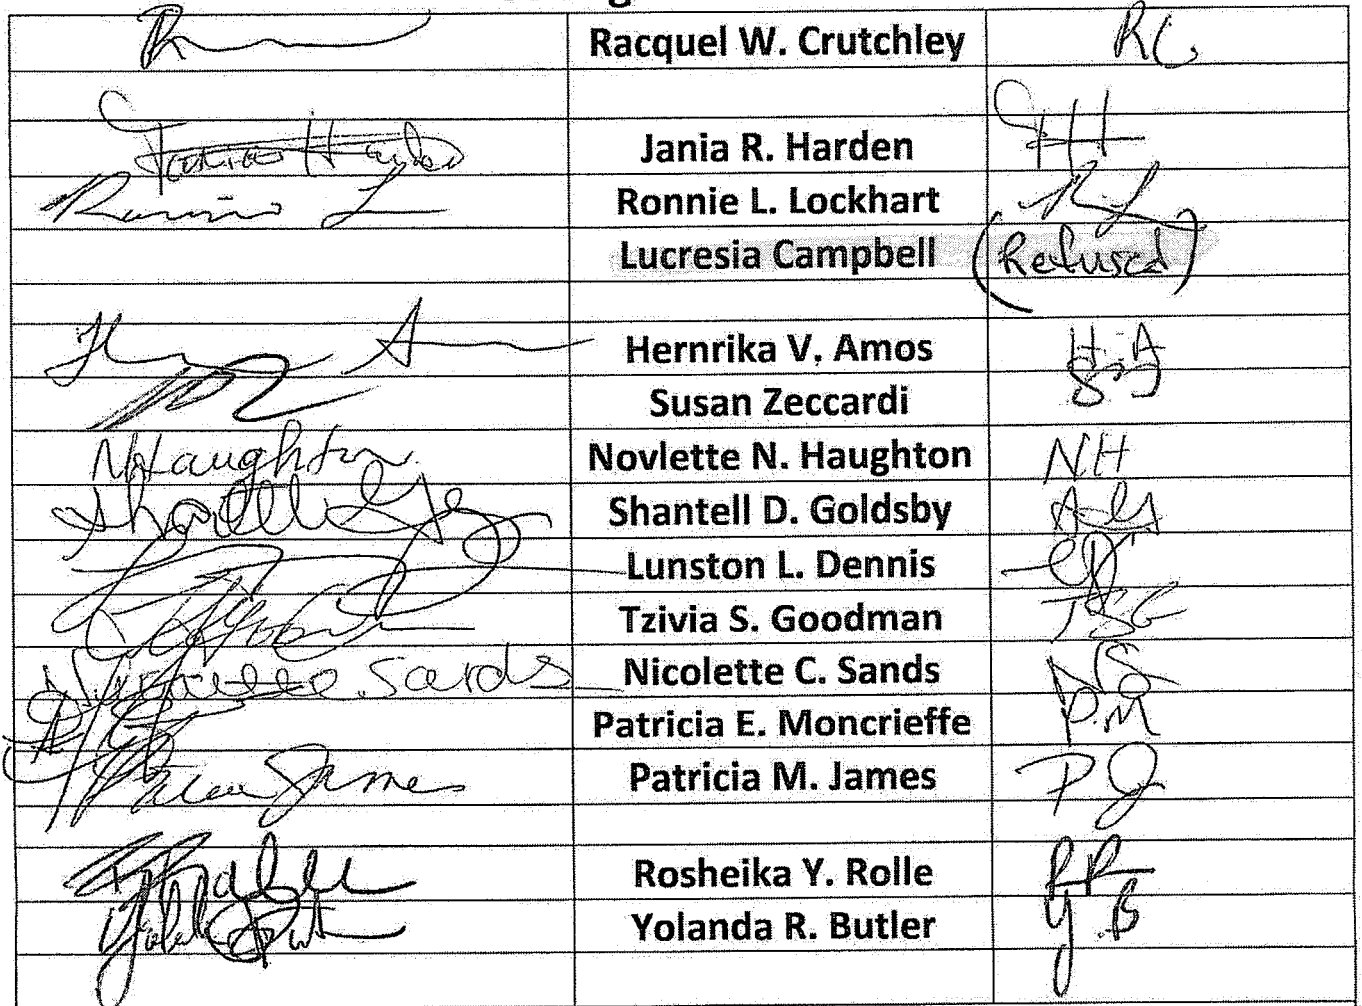 Racquel W. Crutchley RC
Jania Harden Jania R. Harden JH
Ronnie L Ronnie L. Lockhart RL
Lucresia Campbell (Refused)
Hernrika V. Amos H.A
Susan Zeccardi
NHaughton Novlette N. Haughton NH
Shantell Shantell D. Goldsby
Lunston L. Dennis
Tzivia S. Goodman TSG
Nicolette Sands Nicolette C. Sands NS
Patricia E. Moncrieffe P.M
James Patricia M. James PJ
Rosheika Y. Rolle RR
Yolanda R. Butler Y.B